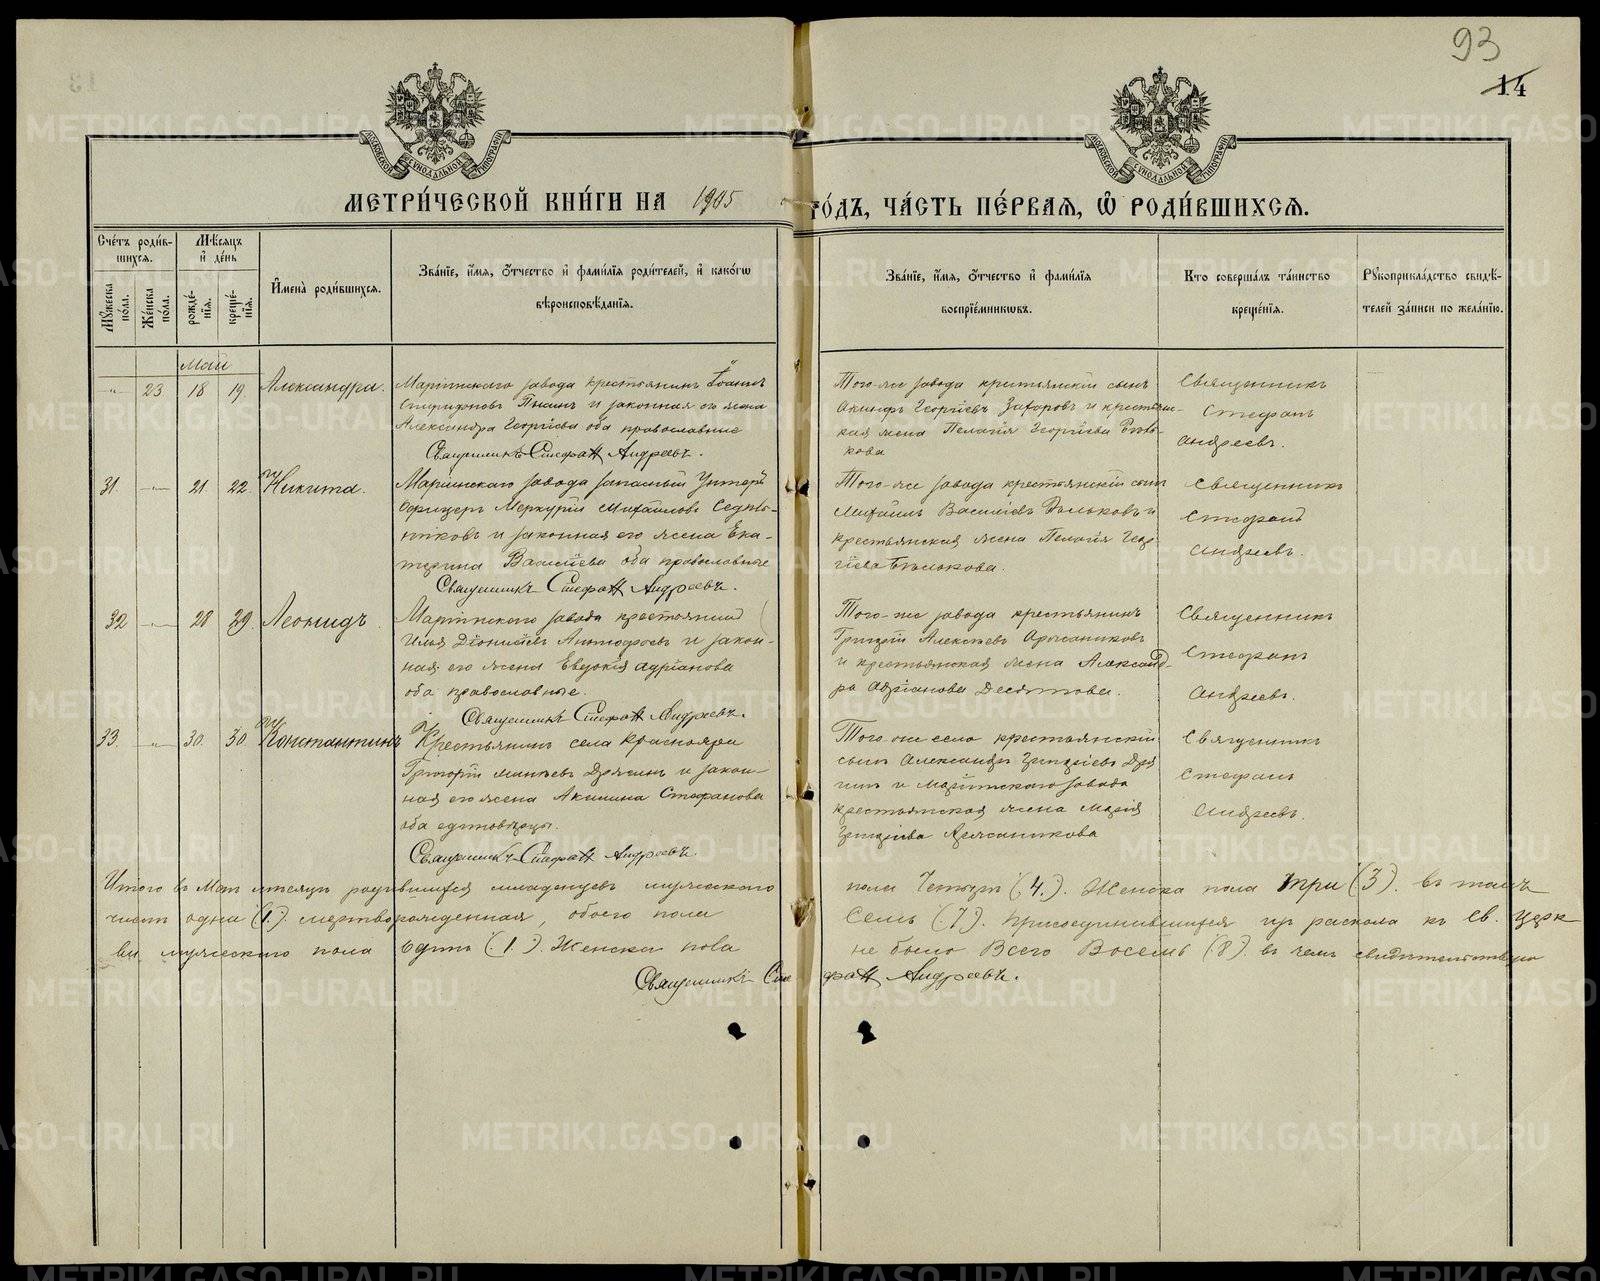 93
14
МОСКОВСКОЙ СѴНОДАЛЬНОЙ ТИПОГРАФІИ
МОСКОВСКОЙ СѴНОДАЛЬНОЙ ТИПОГРАФІИ
МЕТРИ́ЧЕСКОЙ КНИ́ГИ НА 1905 ГО́ДЪ, ЧА́СТЬ ПЕ́РВАЯ, Ѡ РОДИ́ВШИХСЯ.
Сче́тъ роди́в-
шихся.
Мꙋ́жеска по́ла.
Же́нска по́ла.
Мѣ́сяцъ
и́ де́нь
рожде́-
нїя.
креще́-
нїя.
И҆мена̀ роди́вшихся.
Зва́нїе, и҆́мя, ѻ҆́тчество и҆ фами́лїя роди́телей, и҆ како́гѡ
вѣроисповѣ́данїя.
Зва́нїе, и҆́мя, ѻ҆́тчество и҆ фами́лїя
воспрїе́мникѡвъ.
Кто̀ соверша́лъ та́инство
креще́нїя.
Рꙋкоприкла́дство свидѣ́-
телей за́писи по жела́нїю.
Май
" 23 18 19 Александра.
Маріинскаго завода крестьянинъ Іоаннъ
Спиридоновъ и законная его жена
Александра Георгіева оба православные
Священникъ Стефанъ Андреевъ.
Того-же завода крестьянскій сынъ
Георгіевъ Захаровъ и крестьян-
ская жена Пелагія Георгіева Бѣль-
кова
Священникъ
Стефанъ
Андреевъ.
31. " 21 22 Никита.
Маріинскаго завода запасный Унтеръ
Офицеръ Меркурій Михайловъ Седь-
никовъ и законная его жена Ека-
терина Васильева оба православные
Священникъ Стефанъ Андреевъ.
Того-же завода крестьянскій сынъ
Михаилъ Васильевъ Бѣльковъ и
крестьянская жена Пелагія Геор-
гіева Бѣлькова.
Священникъ
Стефанъ
Андреевъ.
32 " 28 29. Леонидъ
Маріинскаго завода крестьянинъ
Илья Діонисіевъ и закон-
ная его жена Евдокія Адріанова
оба православные.
Священникъ Стефанъ Андреевъ.
Того-же завода крестьянинъ
Григорій Алексѣевъ
и крестьянская жена Александ-
ра Адріанова Десятова.
Священникъ
Стефанъ
Андреевъ.
33. " 30. 30. Константинъ
Крестьянинъ села Краснояра
Григорій Дрягинъ и закон-
ная его жена Акилина Стефанова
оба единовѣрцы.
Священникъ Стефанъ Андреевъ.
Того-же села крестьянскій
сынъ Александръ Григорьевъ Дря
гинъ и Маріинскаго завода
крестьянская жена Марія
Григорьева
Священникъ
Стефанъ
Андреевъ.
Итого въ Маѣ мѣсяцѣ родившихся младенцевъ мужескаго пола Четыре (4.). Женска пола три (3). въ томъ
числѣ одна (1.) мертворожденная, обоего пола Семь (7.). Присоединившихся изъ раскола къ Св. Церк
ви мужескаго пола Одинъ (1.). Женска пола не было Всего Восемь (8). въ чемъ свидѣтельствую
Священникъ Стефанъ Андреевъ.
METRIKI.GASO-URAL.RU